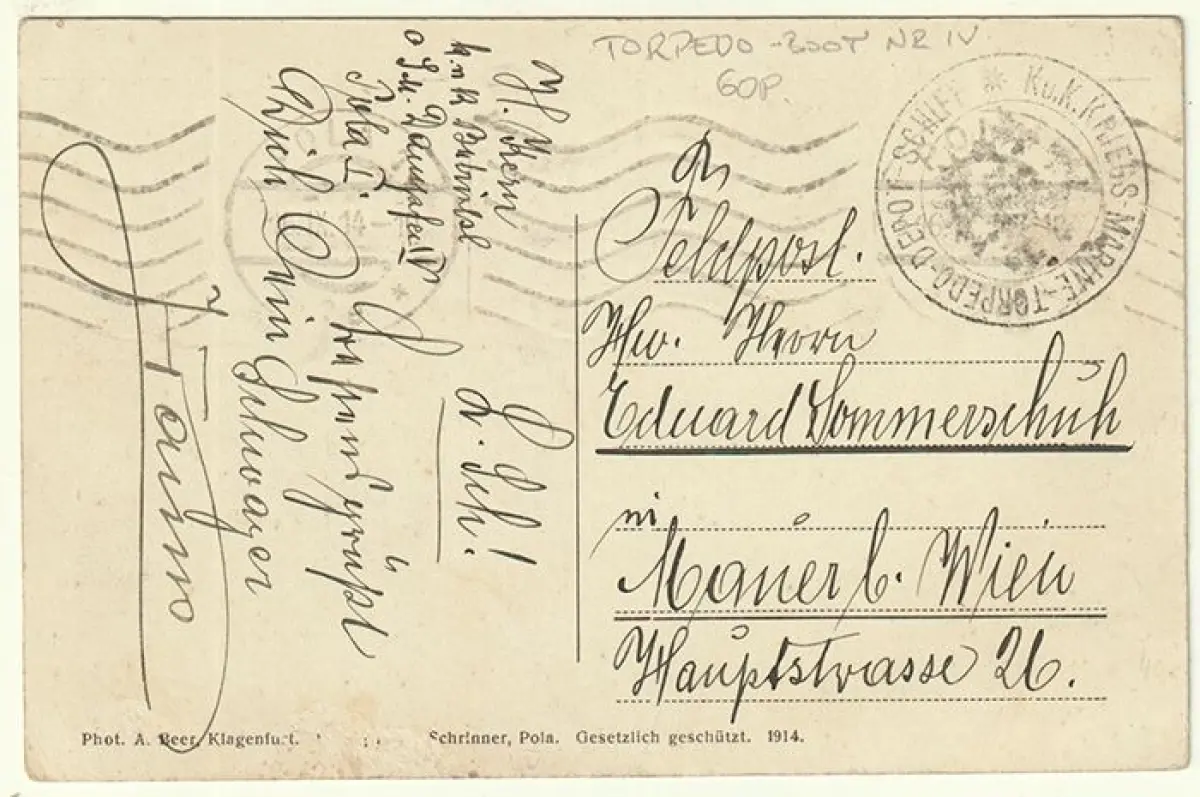 TORPEDO-BOOT NR IV
60P.
K.u.K. KRIEGS-MARINE-TORPEDO-DEPOT-SCHIFF *
14
An
Feldpost.
Herrn
Eduard Sommerschuh
in
Mauer b. Wien
Hauptstrasse 26.
H. Kern
Pola I
L. Sch!
Dich Dein
Schwager
Phot. A. Beer, Klagenfurt.
Schrinner, Pola. Gesetzlich geschützt. 1914.